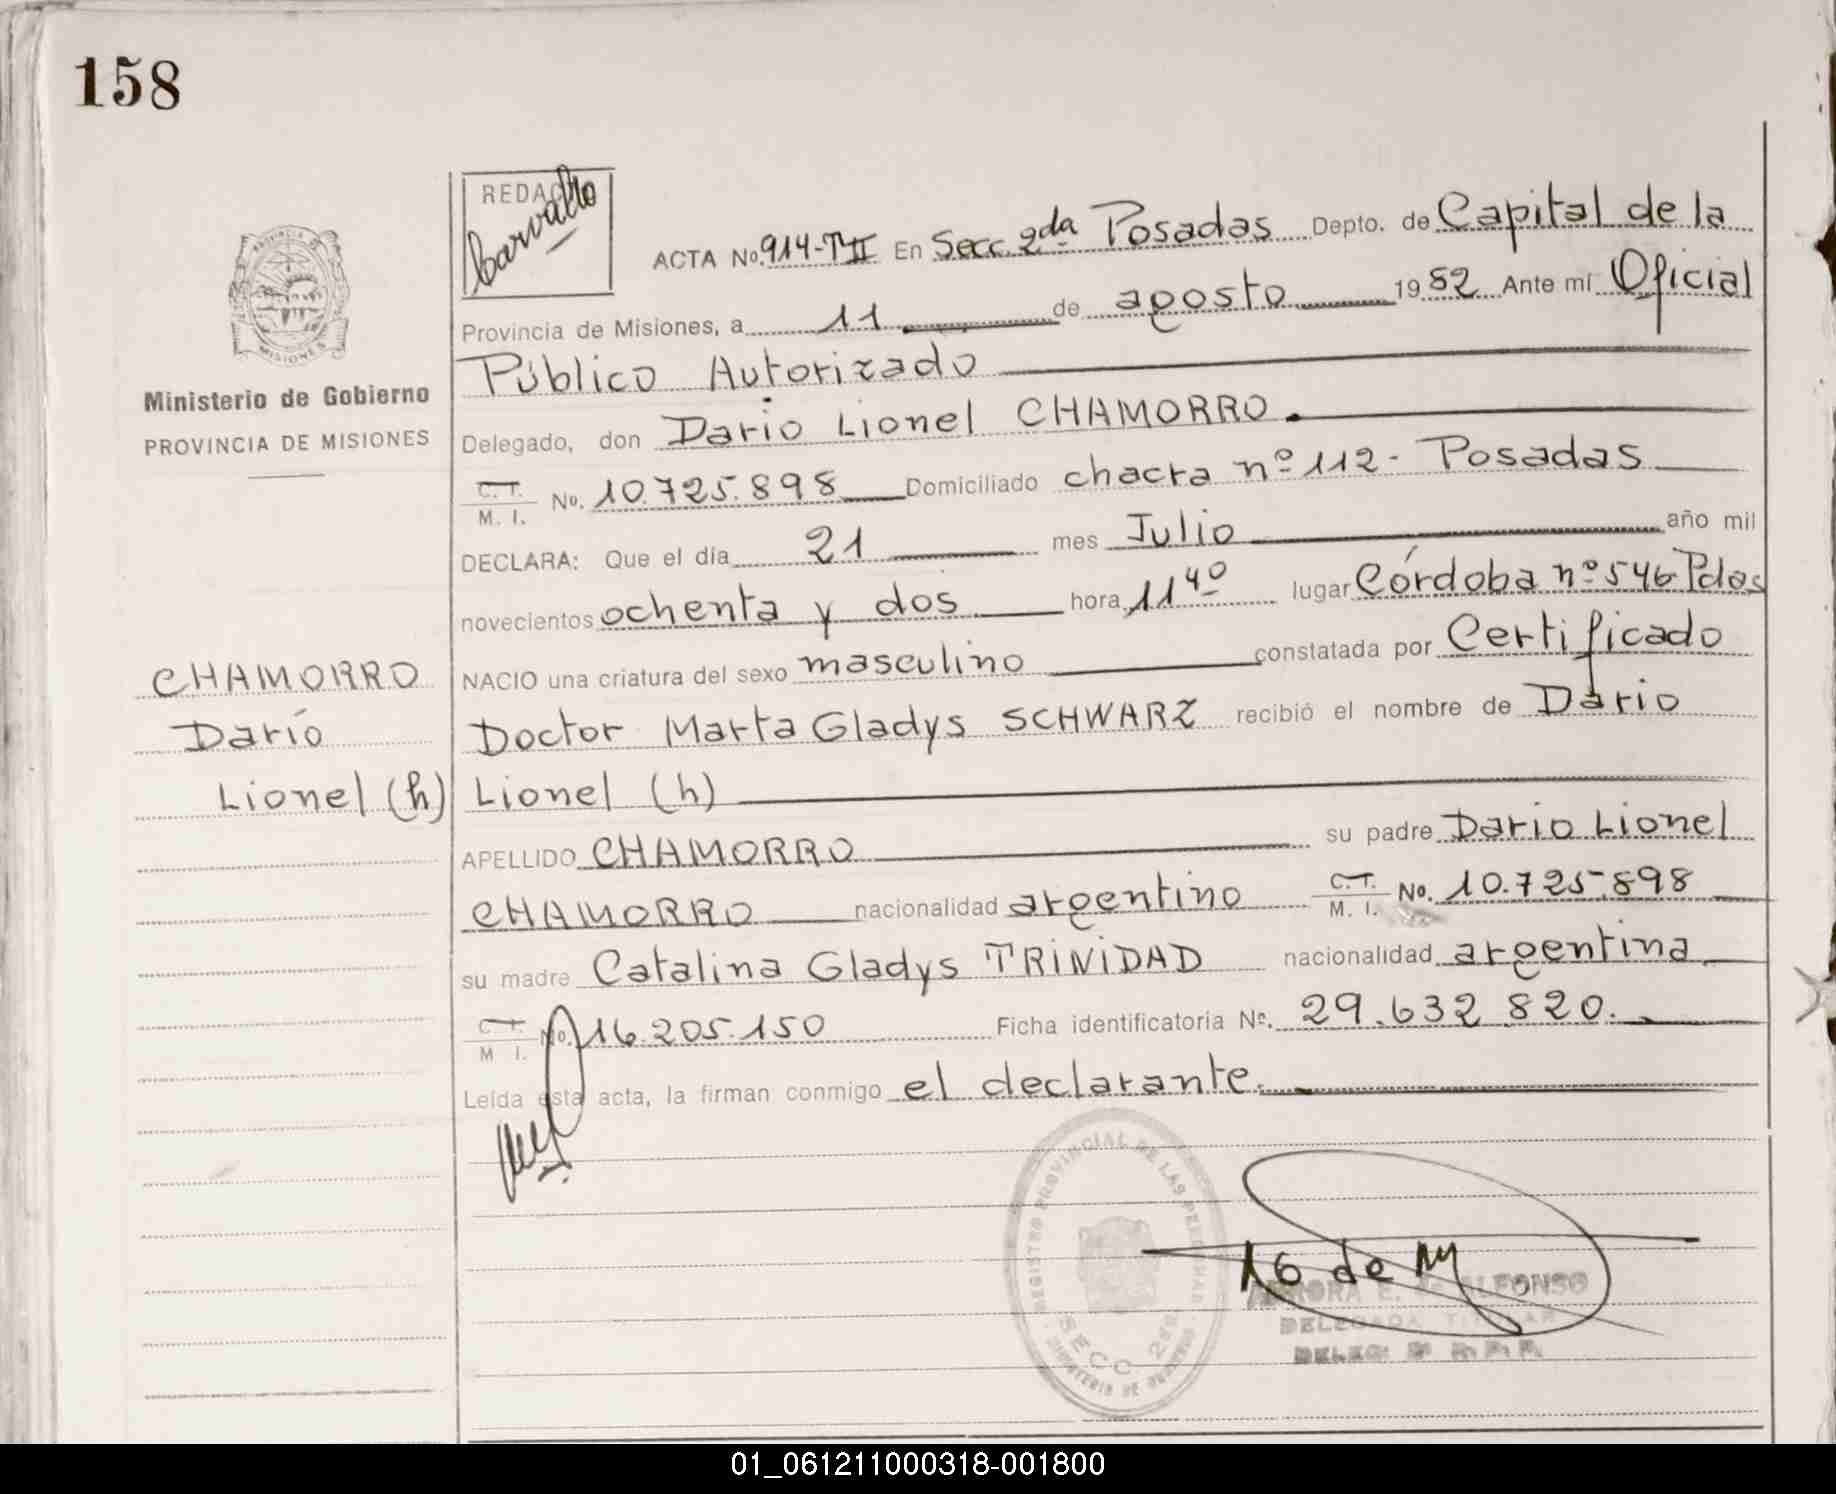 158
REDACTO
Carvallo
ACTA No. 914-TII En Secc. 2da Posadas Depto. de Capital de la
Provincia de Misiones, a 11 de agosto 1982 Ante mí Oficial
Público Autorizado
Delegado, don Dario Lionel CHAMORRO.
C. T. M. I. No. 10.725.898 Domiciliado chacra nº 112 - Posadas
DECLARA: Que el día 21 mes Julio año mil
novecientos ochenta y dos hora 11 40 lugar Córdoba nº 546 Pdas
NACIO una criatura del sexo masculino constatada por Certificado
Doctor Marta Gladys SCHWARZ recibió el nombre de Dario
Lionel (h)
APELLIDO CHAMORRO su padre Dario Lionel
CHAMORRO nacionalidad argentino C. T. M. I. No. 10.725.898
su madre Catalina Gladys TRINIDAD nacionalidad argentina
C. T. M I. No. 16.205.150 Ficha identificatoria Nº. 29.632.820.
Leída esta acta, la firman conmigo el declarante.
PROVINCIA DE
MISIONES
Ministerio de Gobierno
PROVINCIA DE MISIONES
CHAMORRO
Darío
Lionel (h)
REGISTRO PROVINCIAL DE LAS PERSONAS
SECC. 2da
MINISTERIO DE GOBIERNO
16 de M
AURORA E. de ALFONSO
DELEGADA TITULAR
DELEG. 2ª R.P.P.
01_061211000318-001800